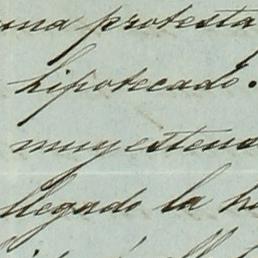 una protesta
hipotecado.
muy estens
llegado la h